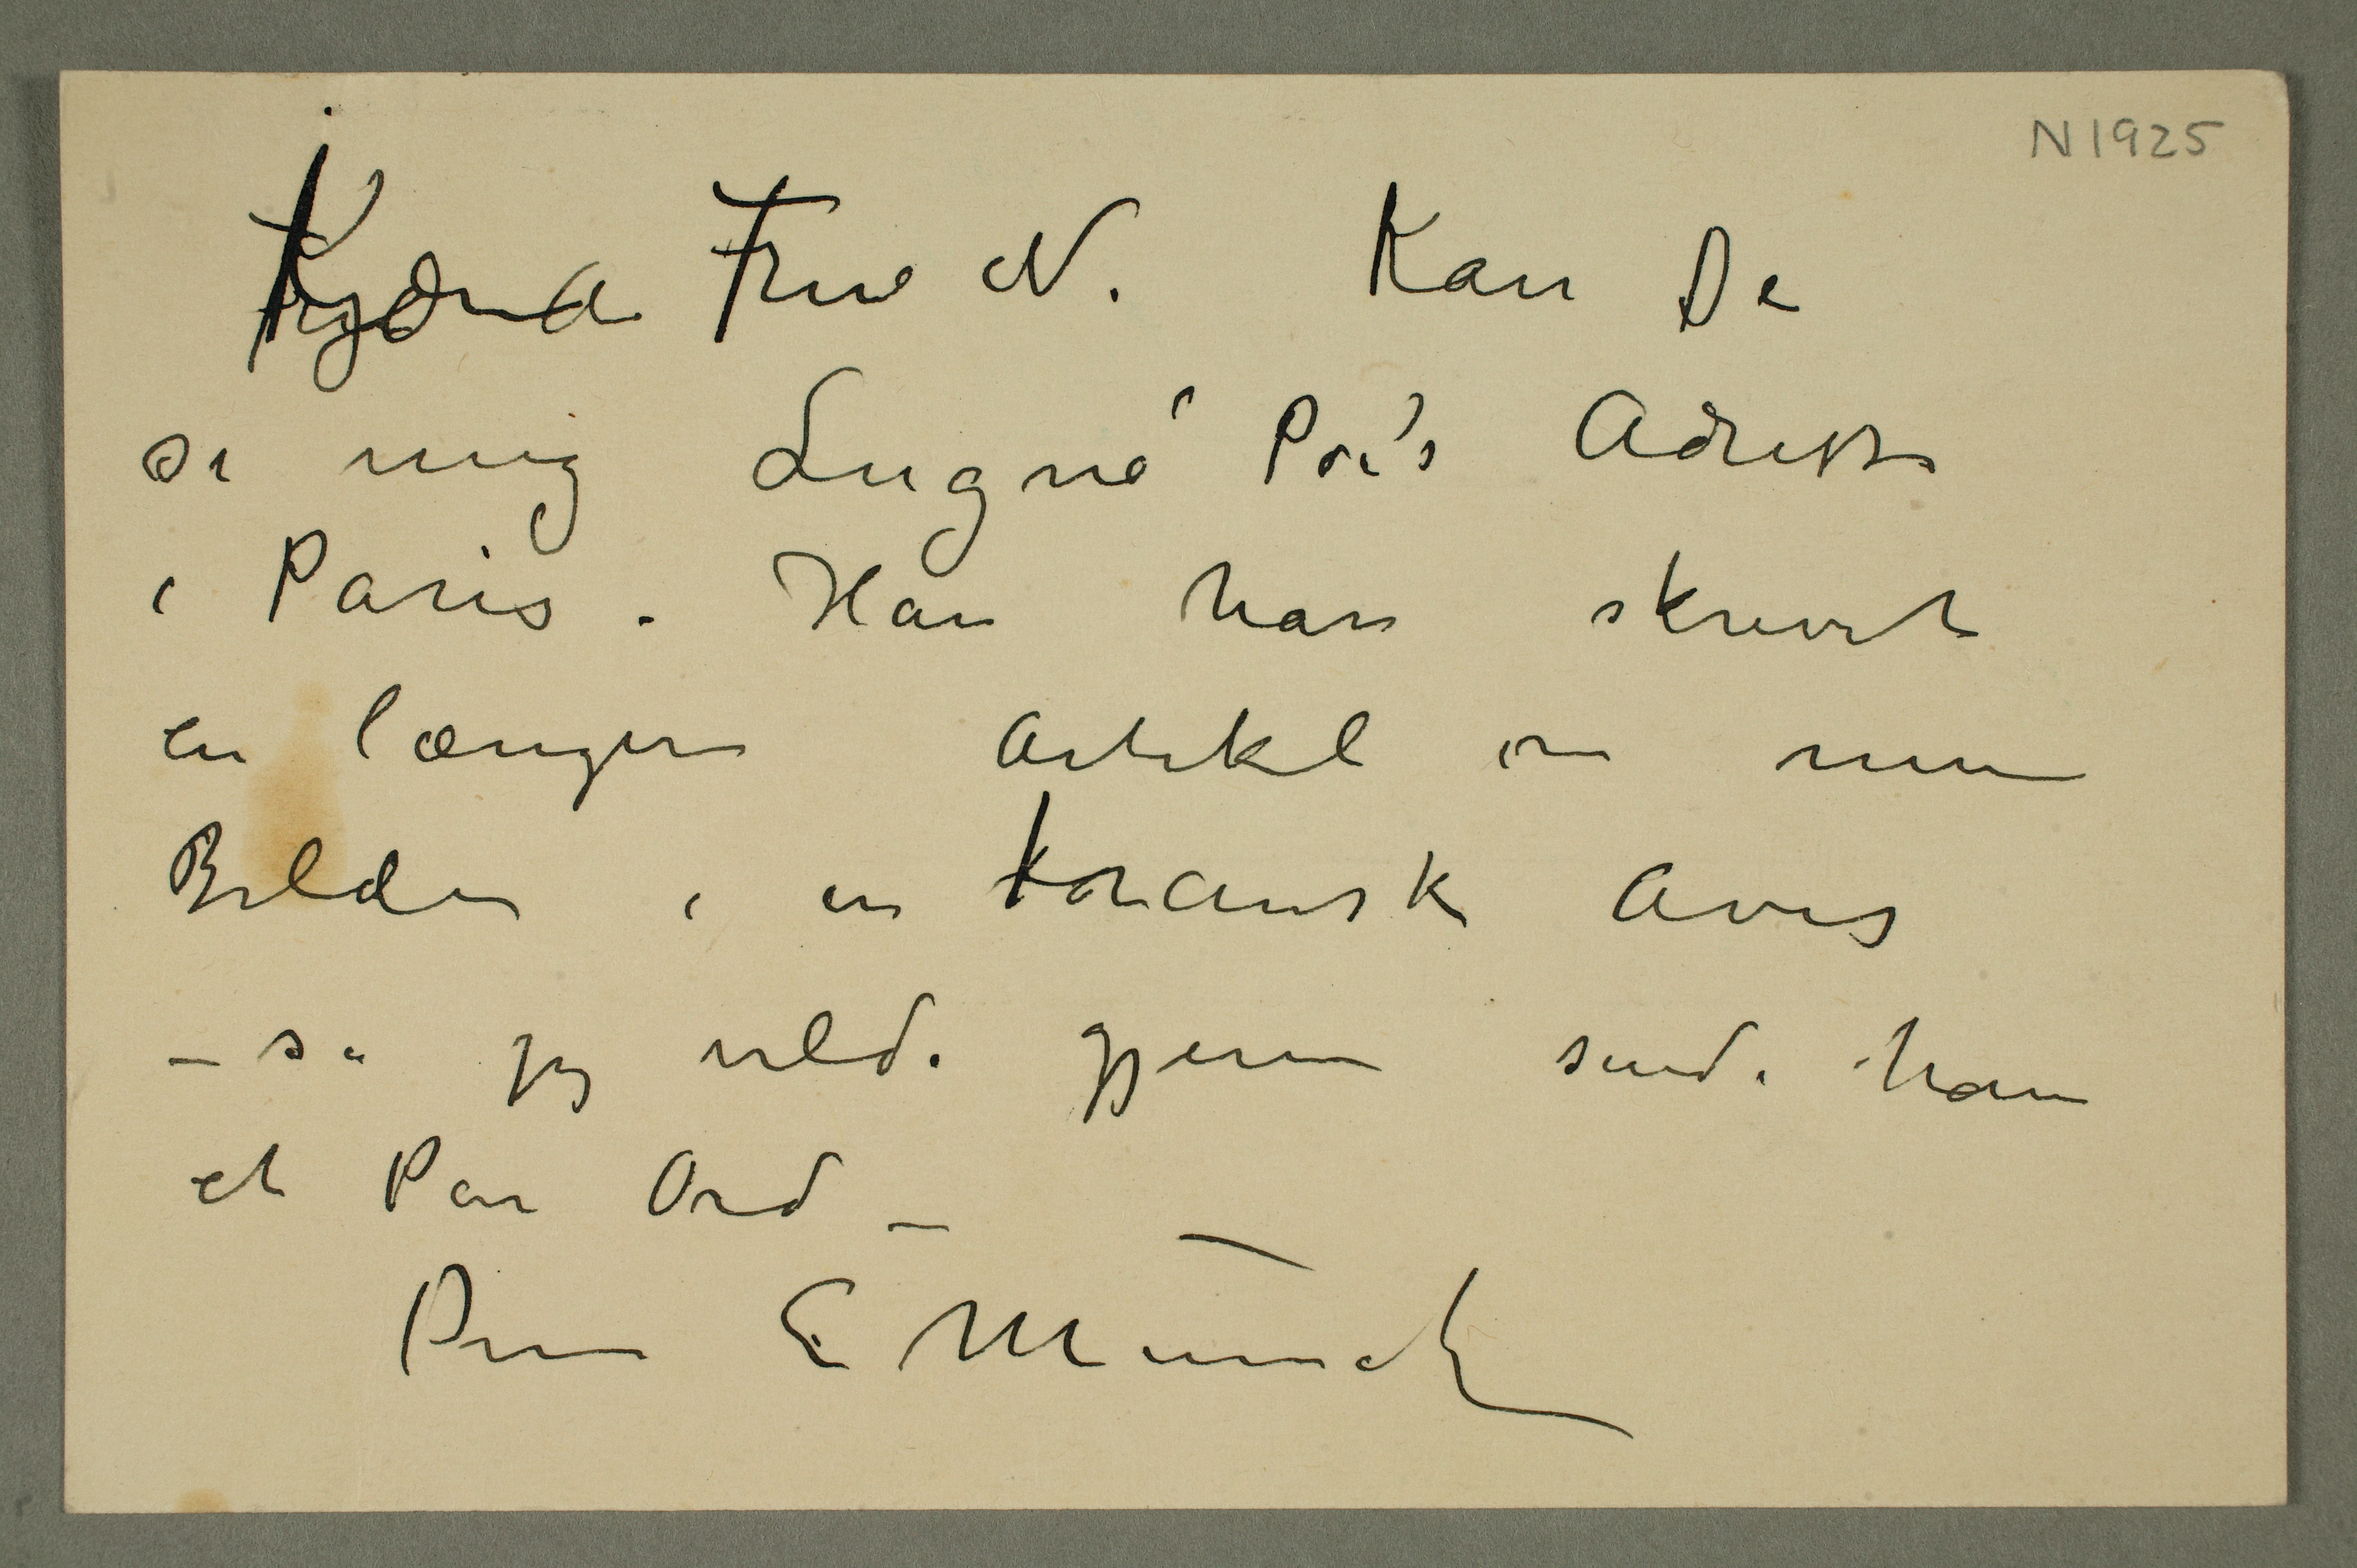 N 1925
Kjære Frue N. Kan De
si mig Lugné Poe's Adresse
i Paris. Han har skrevet
en længere Artikel om mine
Billeder i en fransk Avis
– så jeg vilde gjerne sende ham
et Par Ord –
Deres E Munch